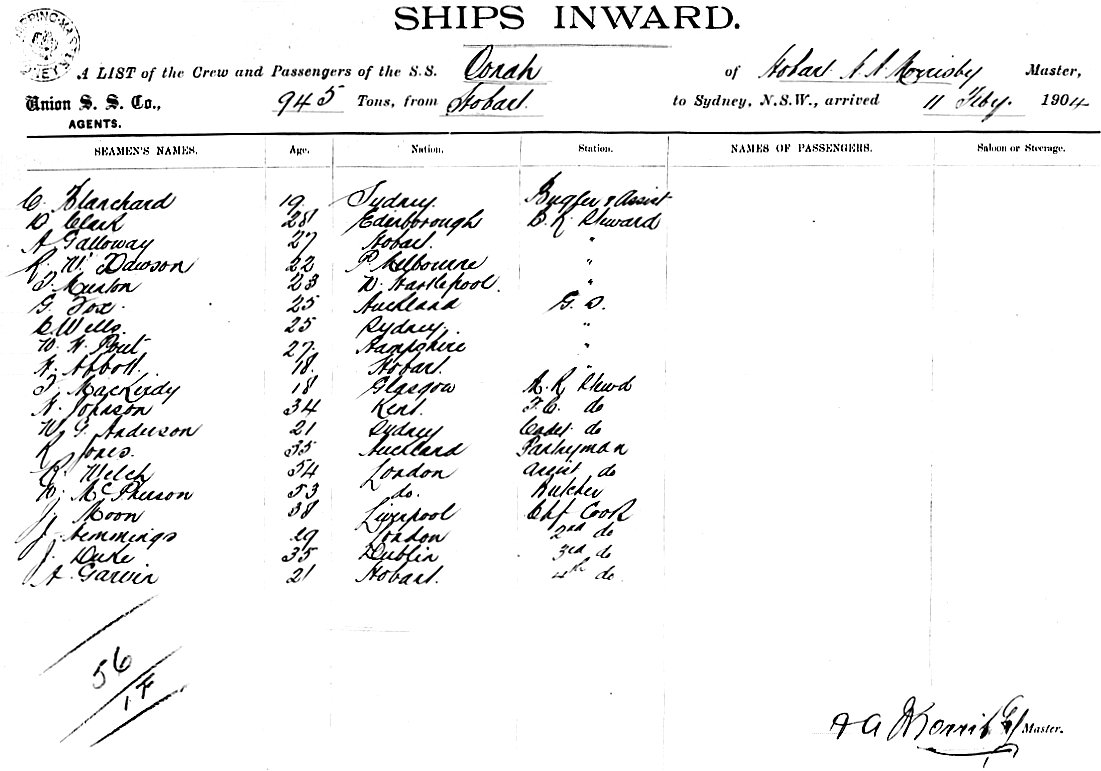 SHIPS INWARD.
A LIST of the Crew and Passengers of the S.S. Oonah of Hobart A A Morrisby Master,
Union S. S. Co., 945 Tons, from Hobart. to Sydney, N.S.W., arrived 11 Feby. 1904
AGENTS.
SEAMEN'S NAMES. Age. Nation. Station. NAMES OF PASSENGERS. Saloon or Steerage.
C. Blanchard 19. Sydney. Bugler & Assist
D. Clark 28 Edinborough B. R. Steward
A Galloway 27 Hobart. "
R. W. Dawson 22 P. Melbourne "
T. Muxton 23 W. Hartlepool. "
G. Fox. 25 Auckland G. S.
C. Wells. 25 Sydney. "
W. H. Pout 27. Hampshire "
H. Abbott. 18. Hobart. "
T. MacKirdy 18 Glasgow M. R. Stewd
H. Johnson 34 Kent. F. C. do
W. G. Anderson 21 Sydney Cadet do
K Jones. 35 Auckland Pantryman
R. Welch 54 London Assist do
D. McPherson 53 do. Butcher
J. Moon 38 Liverpool Chf Cook
J. Hemmings 29 London 2nd do
J. Duke 35 Dublin 3rd do
A Garvin 21 Hobart. 4th do.
56
14
Master.